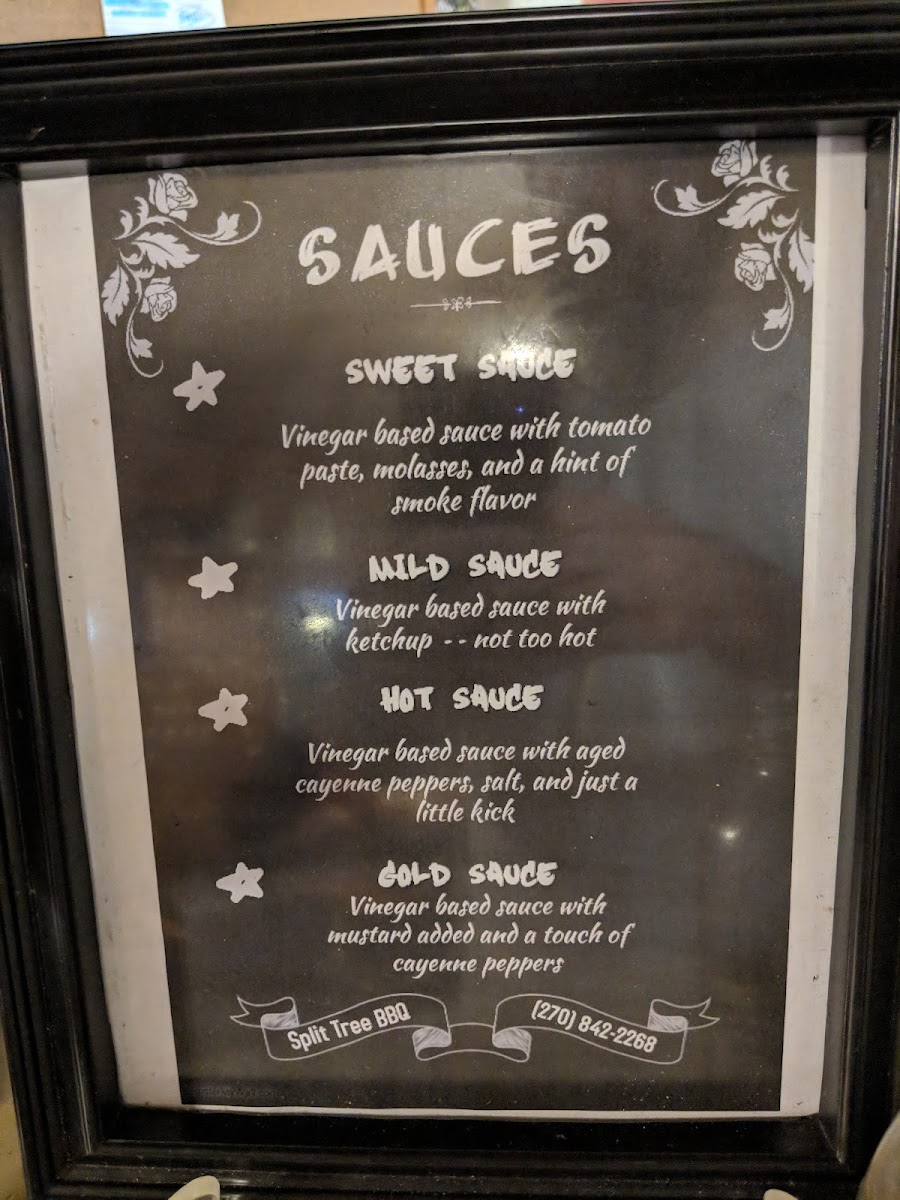 SAUCES
SWEET SAUCE
Vinegar based sauce with tomato
paste, molasses, and a hint of
smoke flavor
MILD SAUCE
Vinegar based sauce with
ketchup -- not too hot
HOT SAUCE
Vinegar based sauce with aged
cayenne peppers, salt, and just a
little kick
GOLD SAUCE
Vinegar based sauce with
mustard added and a touch of
cayenne peppers
Split Tree BBQ
(270) 842-2268